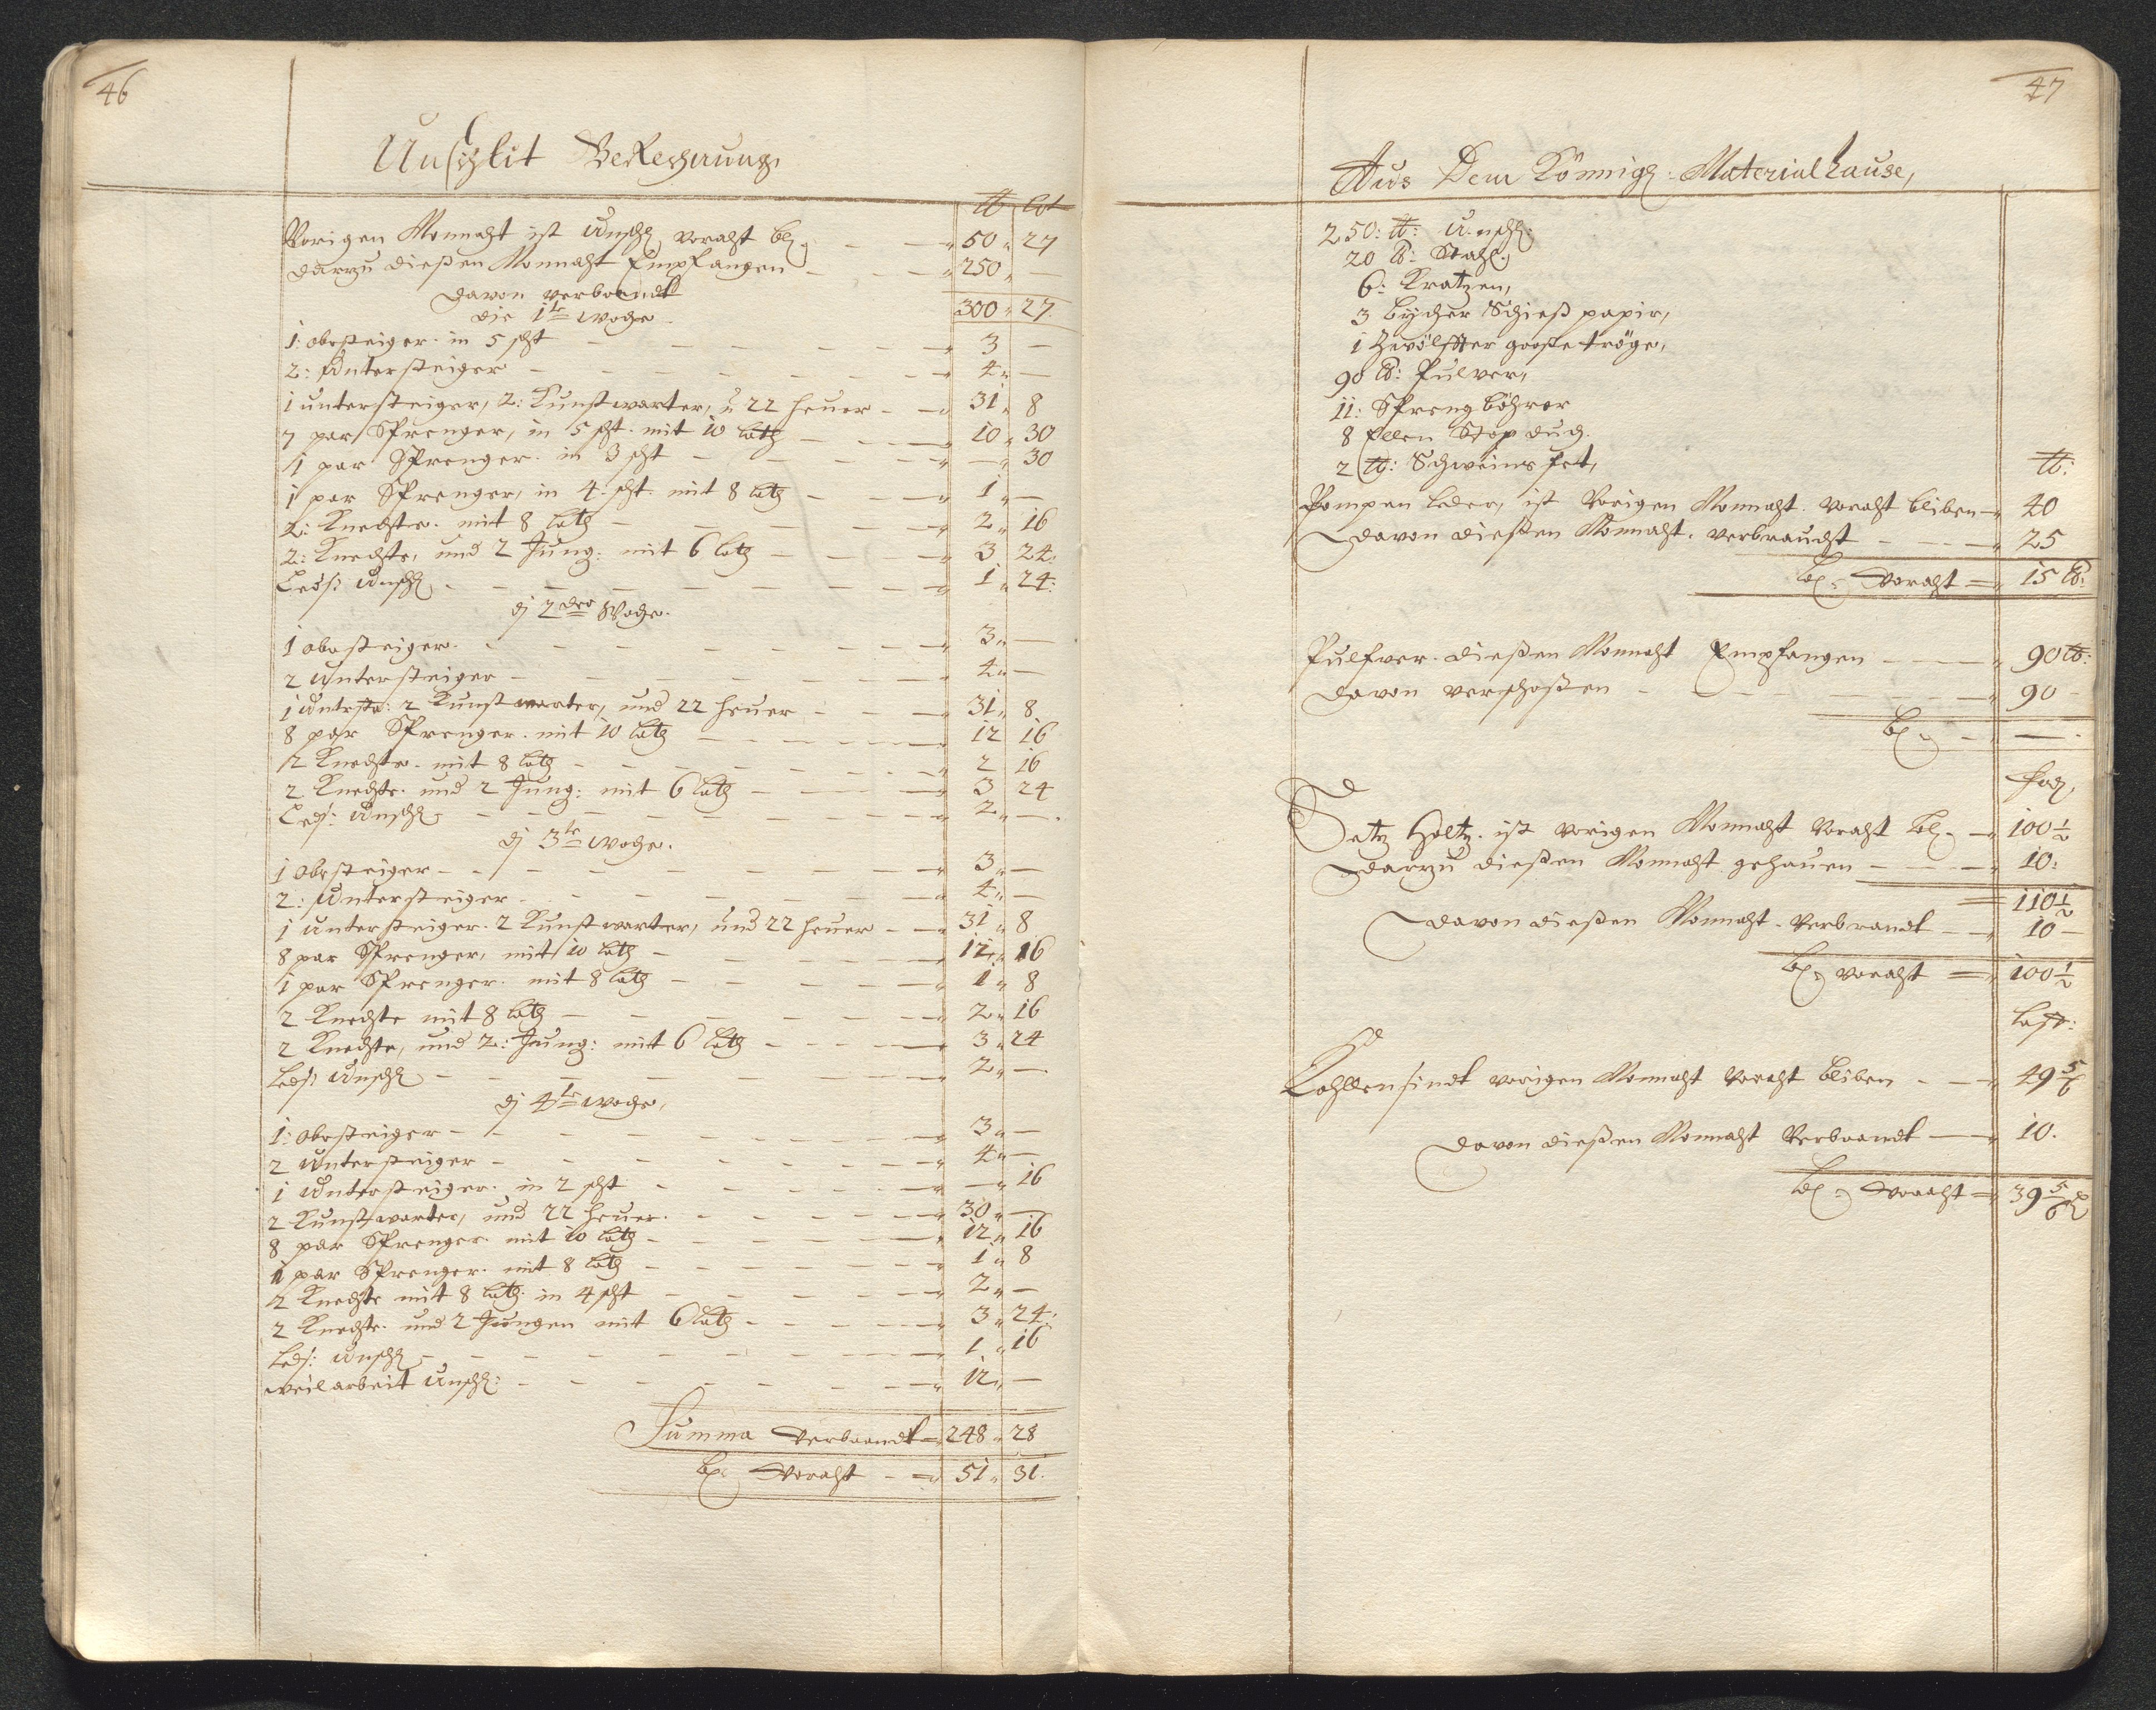 46
Unschlit BeRechnung.
℔ lot
Vorigen Monnaht ist Unschl voraht bl. 50 27
darzu dießen Monnaht Empfangen 250 —
davon verbrandt
die 1te woche 300 27
1: obersteiger. in 5 scht 3 —
2: Untersteiger 4 —
1 untersteiger, 2: Kunstwarter, u 22 heuer 31 8
7 par Sprenger, in 5 scht. mit 10 loth 10 30
1 par Sprenger. in 3 scht — 30
1 par Sprenger, in 4. scht. mit 8 loth 1 —
2: Knechte. mit 8 loth 2 16
2: Knechte, und 2 Jung: mit 6 loth 3 24
Leds: Unschl 1 24
d 2dre Woche.
1 obersteiger. 3 —
2 Untersteiger 4 —
1 Unterste: 2 Kunstwarter, und 22 heuer 31 8
8 par Sprenger. mit 10 loth 12 16
2 Knechte. mit 8 loth 2 16
2 Knechte. und 2 Jung: mit 6 loth 3 24
Leds: Unschl 2 —
d 3te woche.
1 obersteiger 3 —
2: Untersteiger 4 —
1 untersteiger. 2 Kunstwarter, und 22 heuer 31 8
8 par Sprenger, mit 10 loth 12 16
1 par Sprenger. mit 8 loth 1 8
2 Knechte mit 8 loth 2 16
2 Knechte, und 2: Jung: mit 6 loth 3 24
Leds: Unschl 2 —
d 4te woche,
1: obersteiger 3 —
2 Untersteiger 4 —
1 Untersteiger. in 2 scht — 16
2 Kunstwarter, und 22 heuer. 30 —
8 par Sprenger. mit 10 loth 12 16
1 par Sprenger. mit 8 loth 1 8
2 Knechte mit 8 loth. in 4 scht 2 —
2 Knechte. und 2 Jungen mit 6 loth 3 24
Leds: Unschl 1 16
weilarbeit Unschl: 12 —
Summa verbrandt 248 28
bl. Voraht 51 31.
47
Aus Dem Könnigl: Materialhause,
250: ℔: Unschl:
20 ℔: Stahl.
6: Kratzen,
3 bücher Schieß papir,
1 Zwölffter große tröge,
90 ℔: Pulver,
11: Sprengböhrer
8 Ellen Stopduch.
2 ℔: Schweinsfet,
℔:
Pompen leder, ist Vorigen Monnaht. voraht bliben 40
davon dießen Monnaht. verbraucht 25
bl. Voraht 15 ℔:
Pulfver. dießen Monnaht Empfangen 90 ℔:
davon verschoßen 90
bl. —
fad,
Setz Holtz. ist vorigen Monnaht Voraht bl. 100 1/2
darzu dießen Monnaht gehauen 10:
110 1/2
davon dießen Monnaht. Verbrandt 10 —
bl. voraht 100 1/2
last:
Kohllen sindt vorigen Monnaht Voraht bliben 49 5/6
davon dießen Monnaht Verbrandt 10.
bl. Voraht 39 5/6